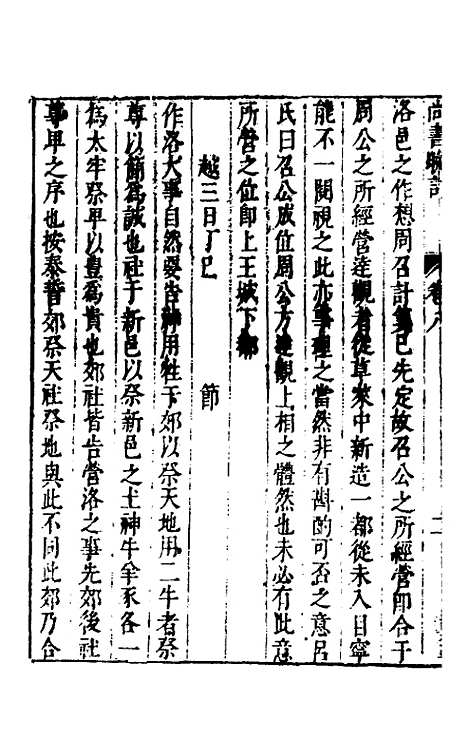 尚書 卷八 二
洛邑之作想周召計算已先定故召公之所經營即合于
周公之所經營達觀者從草萊中新造一都從未入目寧
能不一閱視之此亦事理之當然非有斟酌可否之意呂
氏曰召公成位周公方達觀上相之體然也未必有此意
所營之位即上王城下都
越三日丁巳 節
作洛大事自然要告神用牲于郊以祭天地用二牛者祭
尊以簡為誠也社于新邑以祭新邑之土神牛羊豕各一
為太牢祭卑以豊為貴也郊社皆告營洛之事先郊後社
尊卑之序也按泰誓郊祭天社祭地與此不同此郊乃合